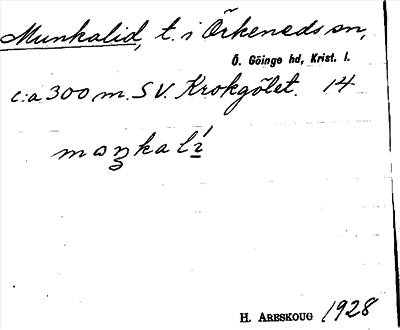 Munkalid, t. i Örkeneds sn,
Ö. Göinge hd, Krist. l.
c:a 300 m. SV. Krokgölet. 14
H. Areskoug 1928